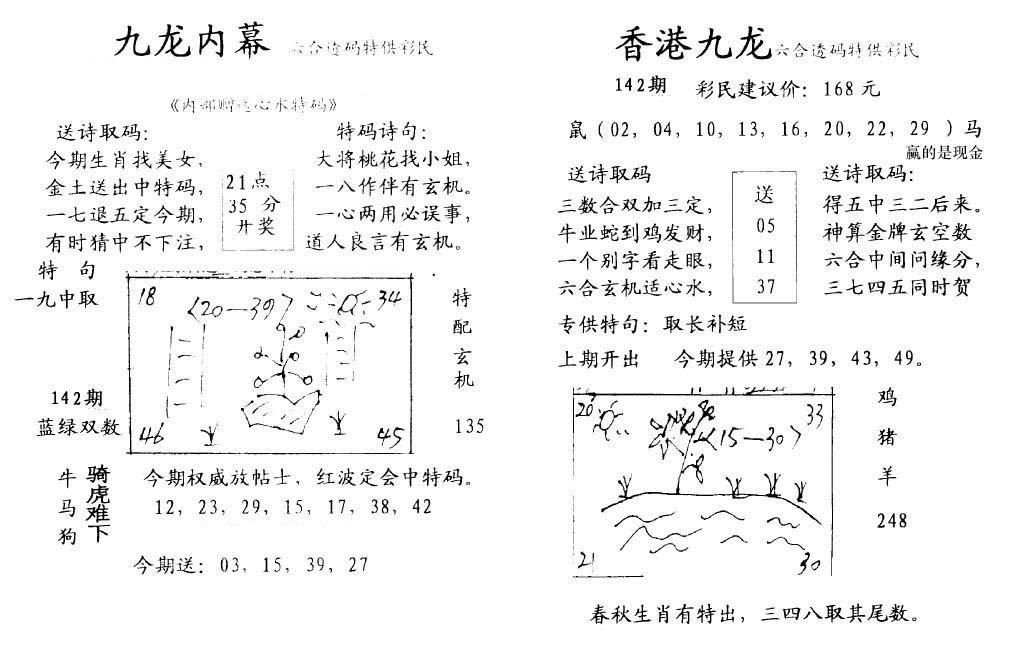 九龙内幕 六合透码特供彩民
《内部赠送心水特码》
送诗取码:
今期生肖找美女,
金土送出中特码,
一七退五定今期,
有时猜中不下注,
21点
35 分
开奖
特码诗句:
大将桃花找小姐,
一八作伴有玄机。
一心两用必误事,
道人良言有玄机。
特 句
一九中取
142期
蓝绿双数
18
〈20—39〉
34
46
45
特
配
玄
机
135
牛
马
狗
骑
虎
难
下
今期权威放帖士, 红波定会中特码。
12, 23, 29, 15, 17, 38, 42
今期送: 03, 15, 39, 27
香港九龙 六合透码特供彩民
142期 彩民建议价: 168 元
鼠 (02, 04, 10, 13, 16, 20, 22, 29 ) 马
赢的是现金
送诗取码
三数合双加三定,
牛业蛇到鸡发财,
一个别字看走眼,
六合玄机适心水,
送
05
11
37
送诗取码:
得五中三二后来。
神算金牌玄空数
六合中间问缘分,
三七四五同时贺
专供特句: 取长补短
上期开出 今期提供 27, 39, 43, 49。
20
33
〈15—30〉
21
30
鸡
猪
羊
248
春秋生肖有特出, 三四八取其尾数。